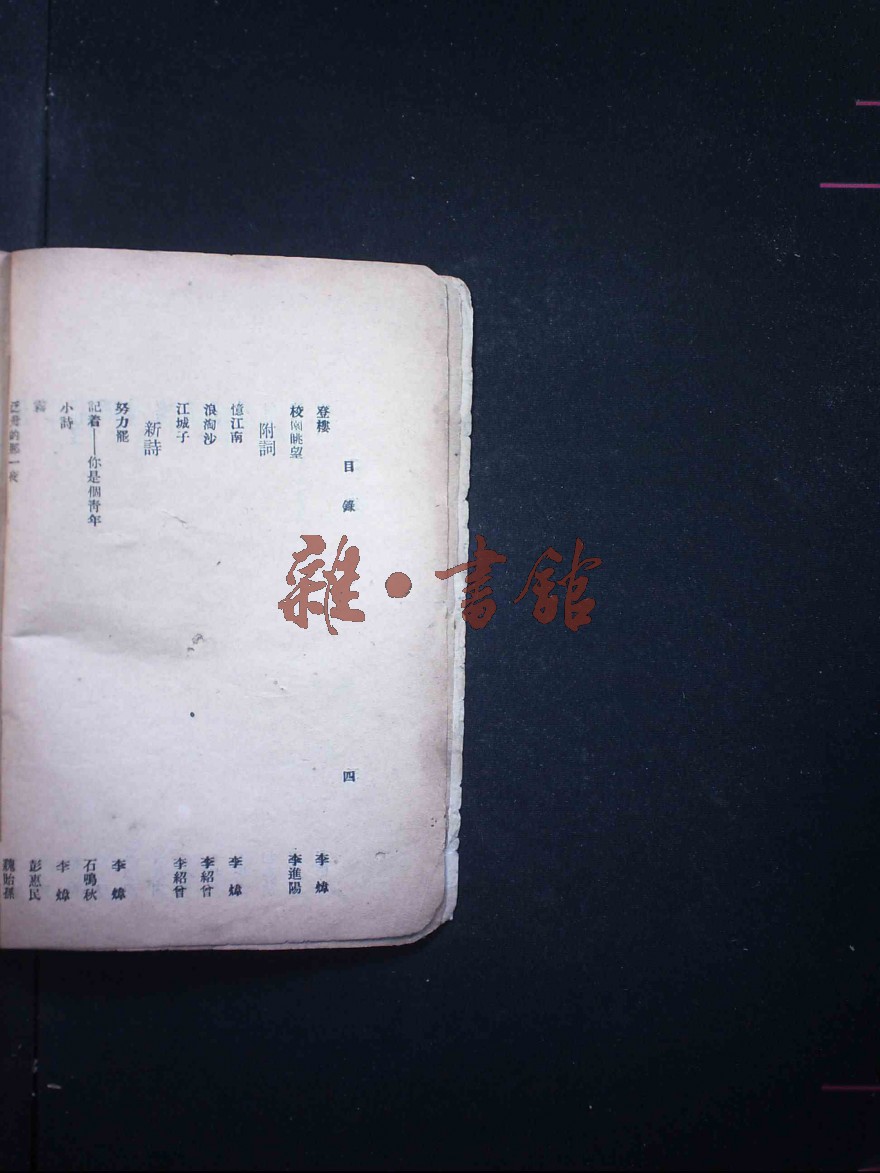 目錄 四
登樓 李煒
校園眺望 李進陽
附詞
憶江南 李煒
浪淘沙 李紹曾
江城子 李紹曾
新詩
努力罷 李煒
記着——你是個青年 石鳴秋
小詩 李煒
霧 彭惠民
泛舟的那一夜 魏貽孫
雜·書館